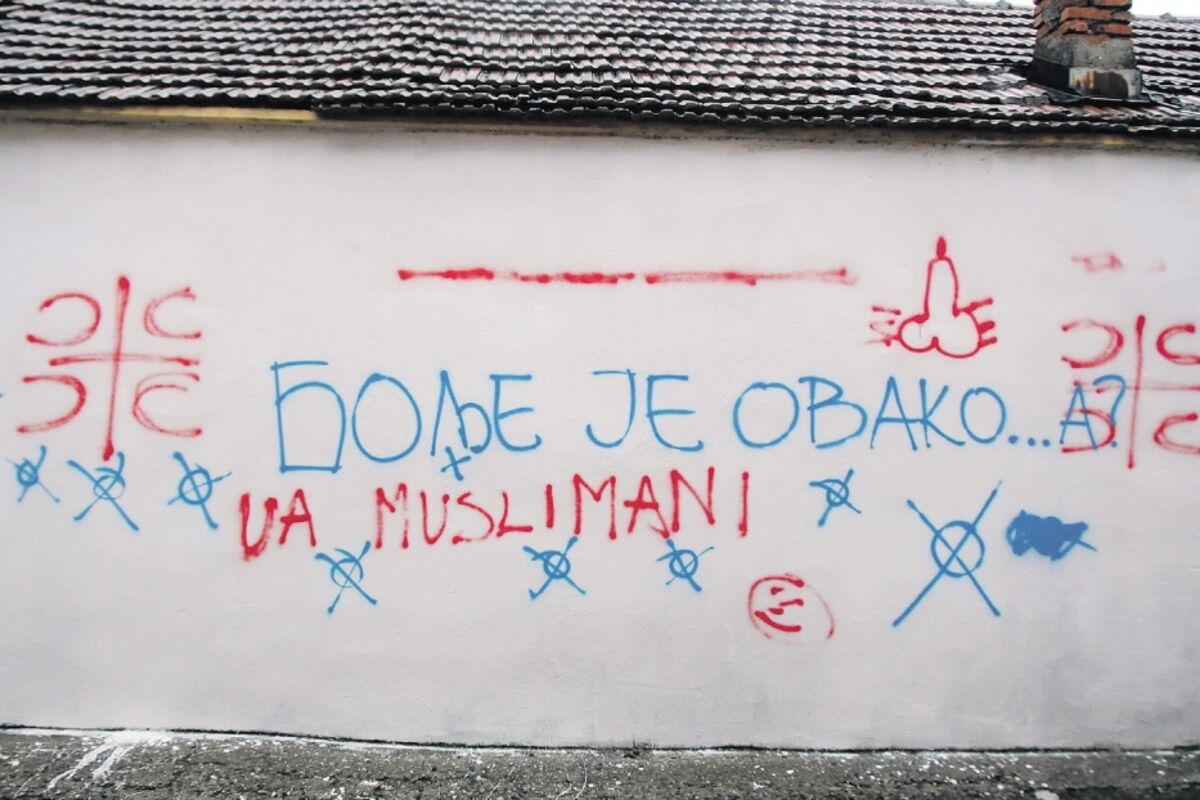 БОЉЕ ЈЕ ОВАКО...А?
UA MUSLIMANI